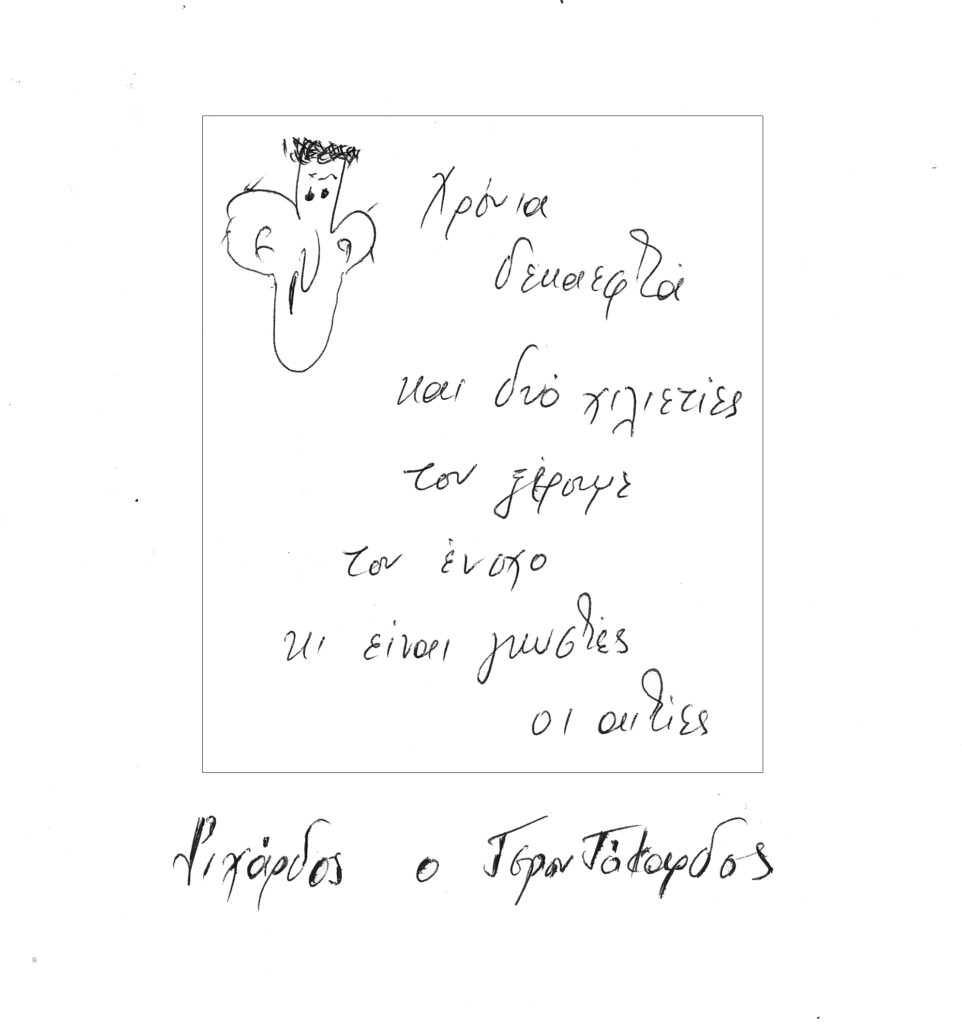 Χρόνια
δεκαεφτά
και δυό χιλιετίες
τον ξέρουμε
τον ένοχο
κι είναι γνωστές
οι αιτίες
Ριχάρδος ο